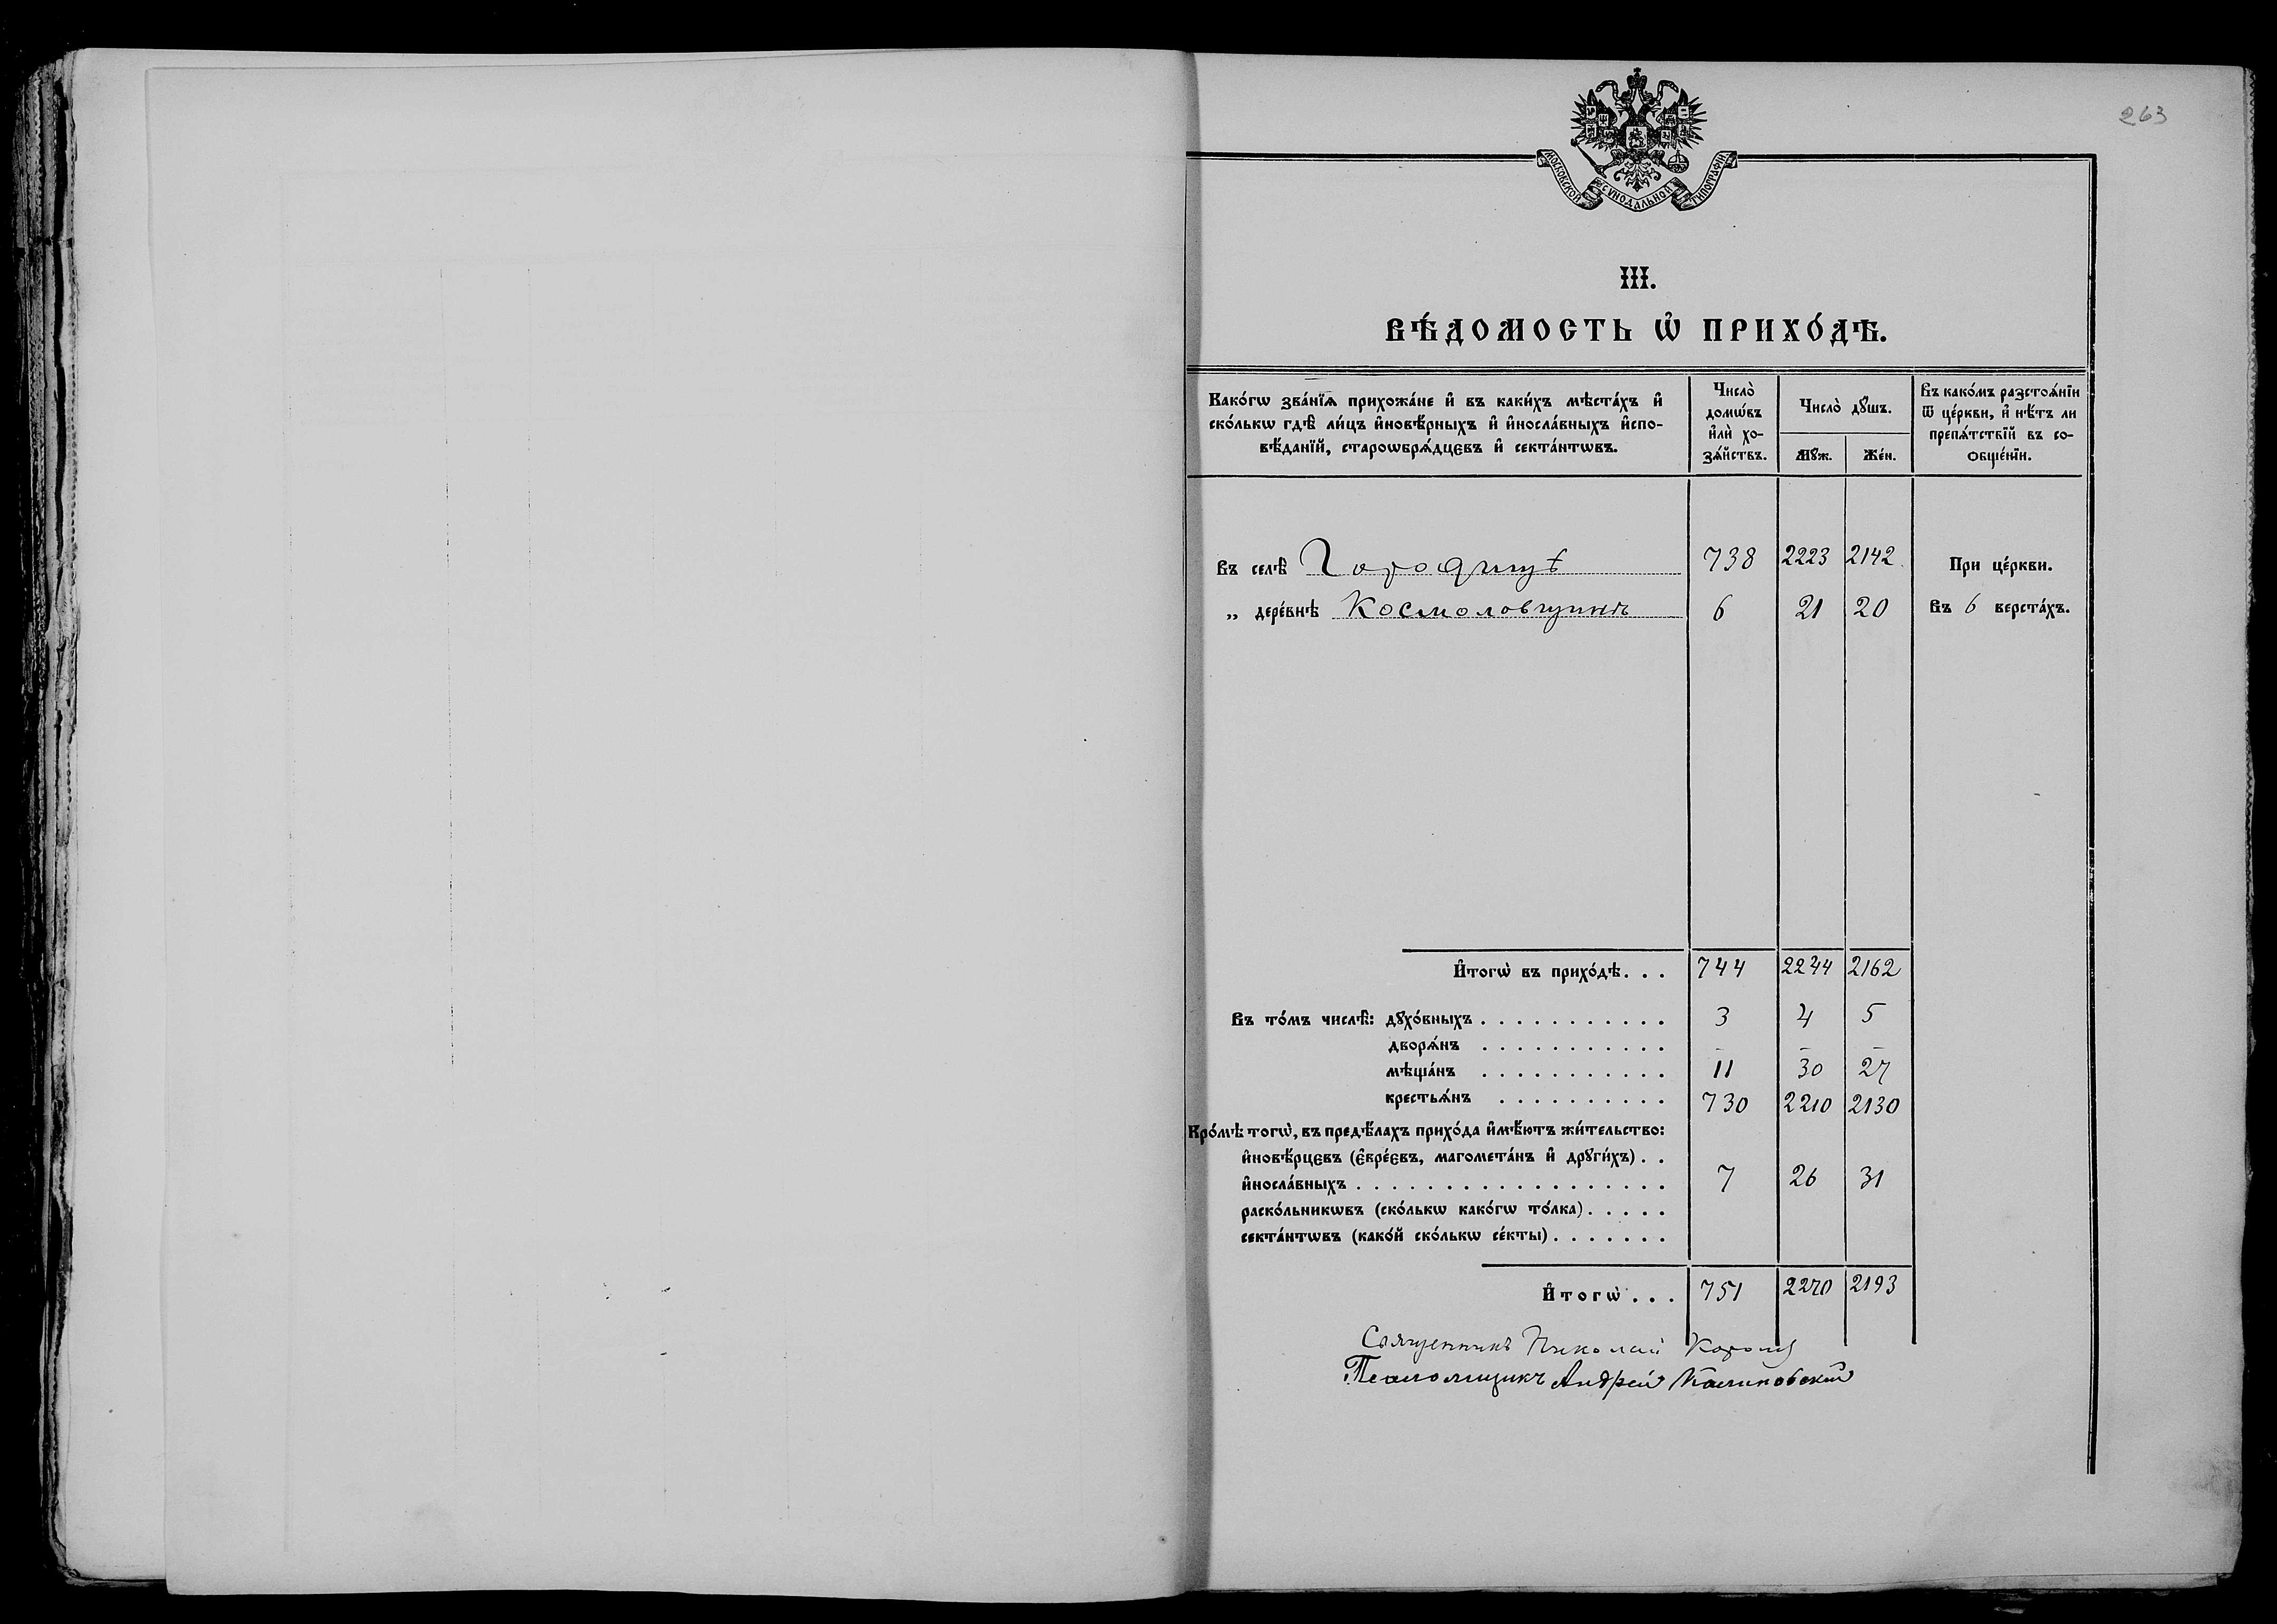 263
МОСКОВСКОЙ СѴНОДАЛЬНОЙ ТИПОГРАФІИ.
III.
ВѢ́ДОМОСТЬ Ѡ҆ ПРИХО́ДѢ.
Како́гѡ зва́нїѧ прихожа́не и҆ въ каки́хъ мѣста́хъ и҆
ско́лькѡ гдѣ̀ ли́цъ и҆новѣ́рныхъ и҆ и҆носла́вныхъ и҆спо-
вѣ́данїй, староѡбрѧ́дцєвъ и҆ секта́нтѡвъ.
Число̀
домѡ́въ
и҆лѝ хо-
зѧ́йствъ.
Число̀ дꙋ́шъ.
Мꙋ́ж.
Же́н.
Въ како́мъ разстоѧ́нїи
ѿ це́ркви, и҆ нѣ́тъ ли
препѧ́тствїй въ со-
ѻбще́нїи.
Въ селѣ̀ Городищѣ 738 2223 2142 При це́ркви.
„ дере́внѣ Космоловщинѣ 6 21 20 Въ 6 верста́хъ.
И҆тогѡ̀ въ прихо́дѣ. . . 744 2244 2162
Въ то́мъ числѣ̀: дꙋхо́вныхъ . . . . . . . . . . . 3 4 5
дворѧ́нъ . . . . . . . . . . . – – –
мѣща́нъ . . . . . . . . . . . 11 30 27
крестьѧ́нъ . . . . . . . . . . 730 2210 2130
Кро́мѣ тогѡ̀, въ предѣ́лахъ прихо́да и҆мѣ́ютъ жи́тельство:
и҆новѣ́рцєвъ (є҆вре́євъ, магомета́нъ и҆ дрꙋги́хъ) . .
и҆носла́вныхъ . . . . . . . . . . . . . . . . . . 7 26 31
раско́льникѡвъ (ско́лькѡ како́гѡ то́лка) . . . . .
секта́нтѡвъ (како́й ско́лькѡ се́кты) . . . . . . .
И҆тогѡ̀ . . . 751 2270 2193
Священникъ Николай Король
Псаломщикъ Андрей Калиновскій